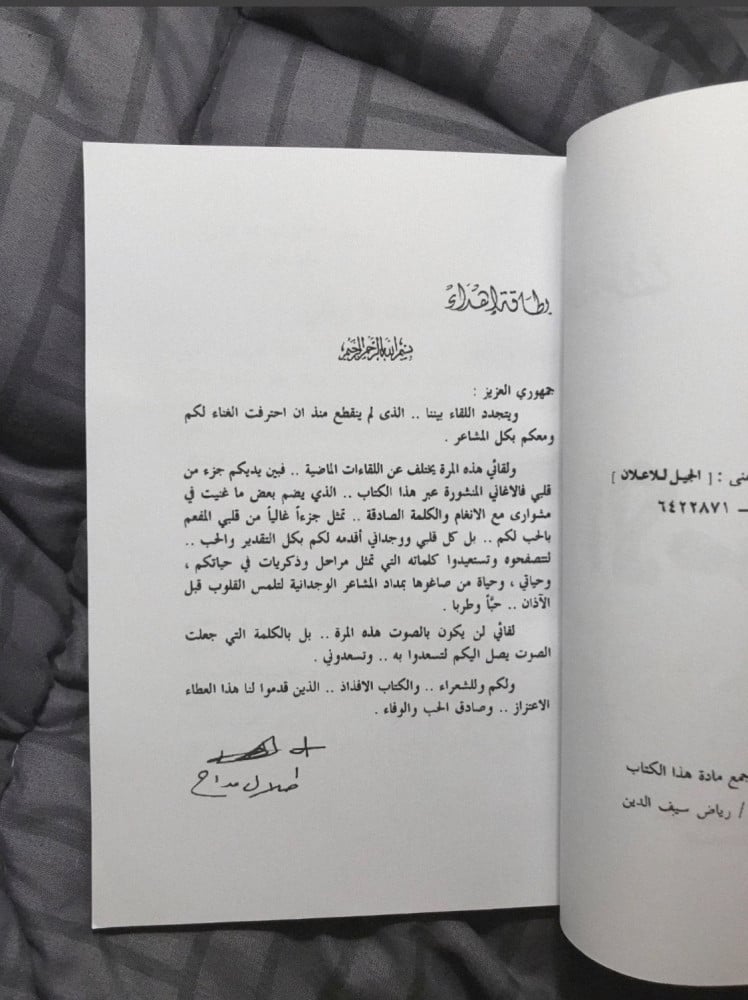 بطاقة إهداء
بسم الله الرحمن الرحيم
جمهوري العزيز :
ويتجدد اللقاء بيننا .. الذى لم ينقطع منذ ان احترفت الغناء لكم
ومعكم بكل المشاعر .
ولقائي هذه المرة يختلف عن اللقاءات الماضية .. فبين يديكم جزء من
قلبي فالاغاني المنشورة عبر هذا الكتاب .. الذي يضم بعض ما غنيت في
مشوارى مع الانغام والكلمة الصادقة .. تمثل جزءاً غالياً من قلبي المفعم
بالحب لكم .. بل كل قلبي ووجداني أقدمه لكم بكل التقدير والحب ..
لتتصفحوه وتستعيدوا كلماته التي تمثل مراحل وذكريات في حياتكم ،
وحياتي ، وحياة من صاغوها بمداد المشاعر الوجدانية لتلمس القلوب قبل
الآذان .. حبَّاً وطربا .
لقائي لن يكون بالصوت هذه المرة .. بل بالكلمة التي جعلت
الصوت يصل اليكم لتسعدوا به .. وتسعدوني .
ولكم وللشعراء .. والكتاب الافذاذ .. الذين قدموا لنا هذا العطاء
الاعتزاز .. وصادق الحب والوفاء .
طلال مداح
: [ الجيل للاعلان ]
٦٤٢٢٨٧١
جمع مادة هذا الكتاب
/ رياض سيف الدين